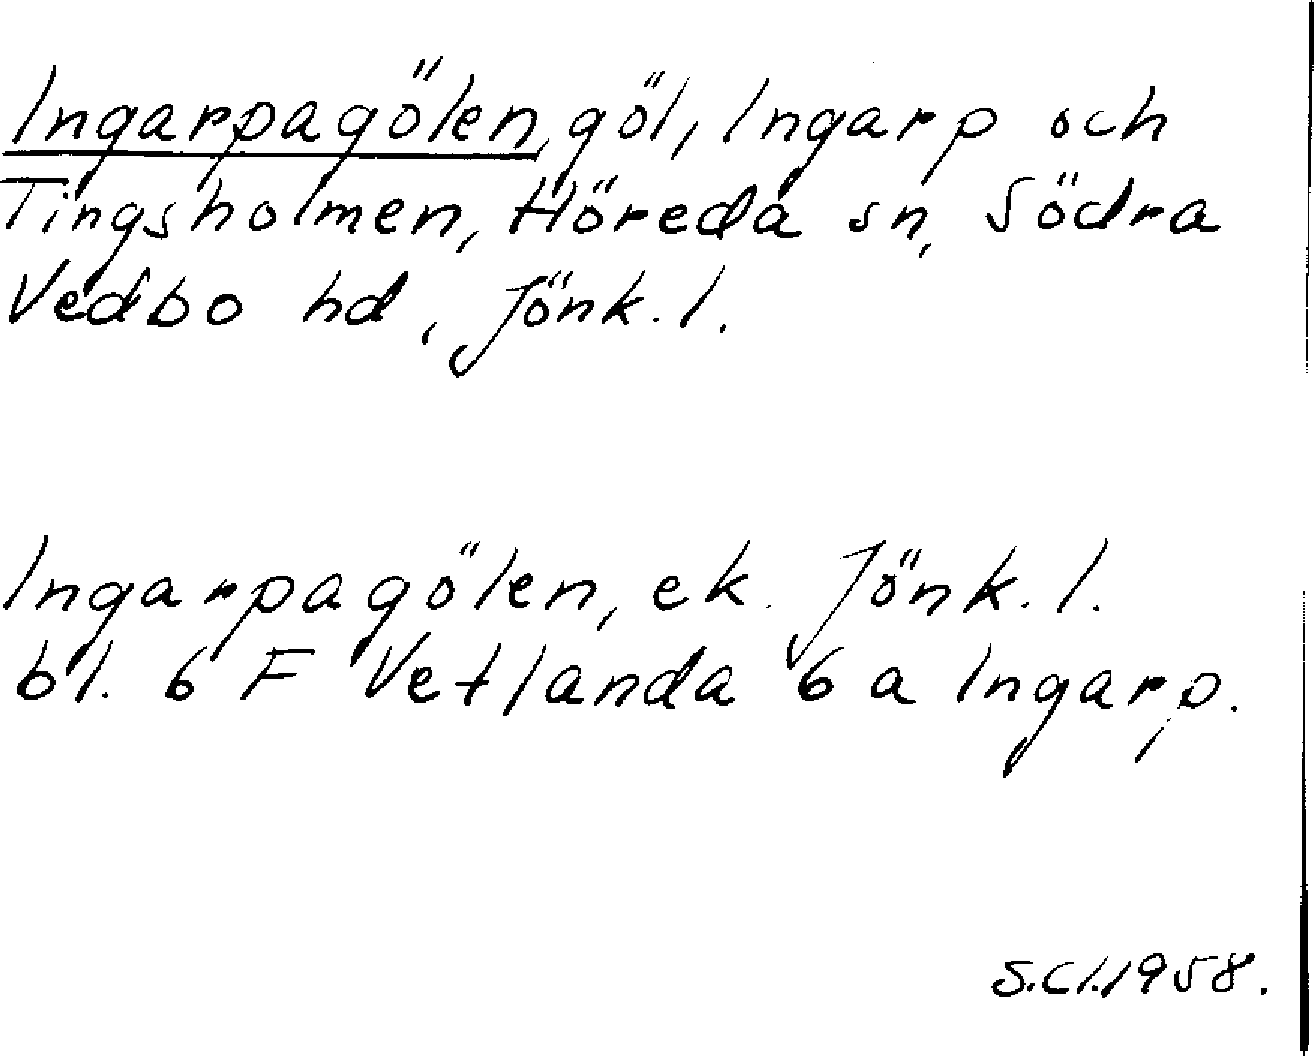 Ingarpagölen, göl, Ingarp och
Tingsholmen, Höreda sn, Södra
Vedbo hd, Jönk. l.
Ingarpagölen, ek. Jönk. l.
bl. 6 F Vetlanda 6 a Ingarp.
S.Cl.1958.